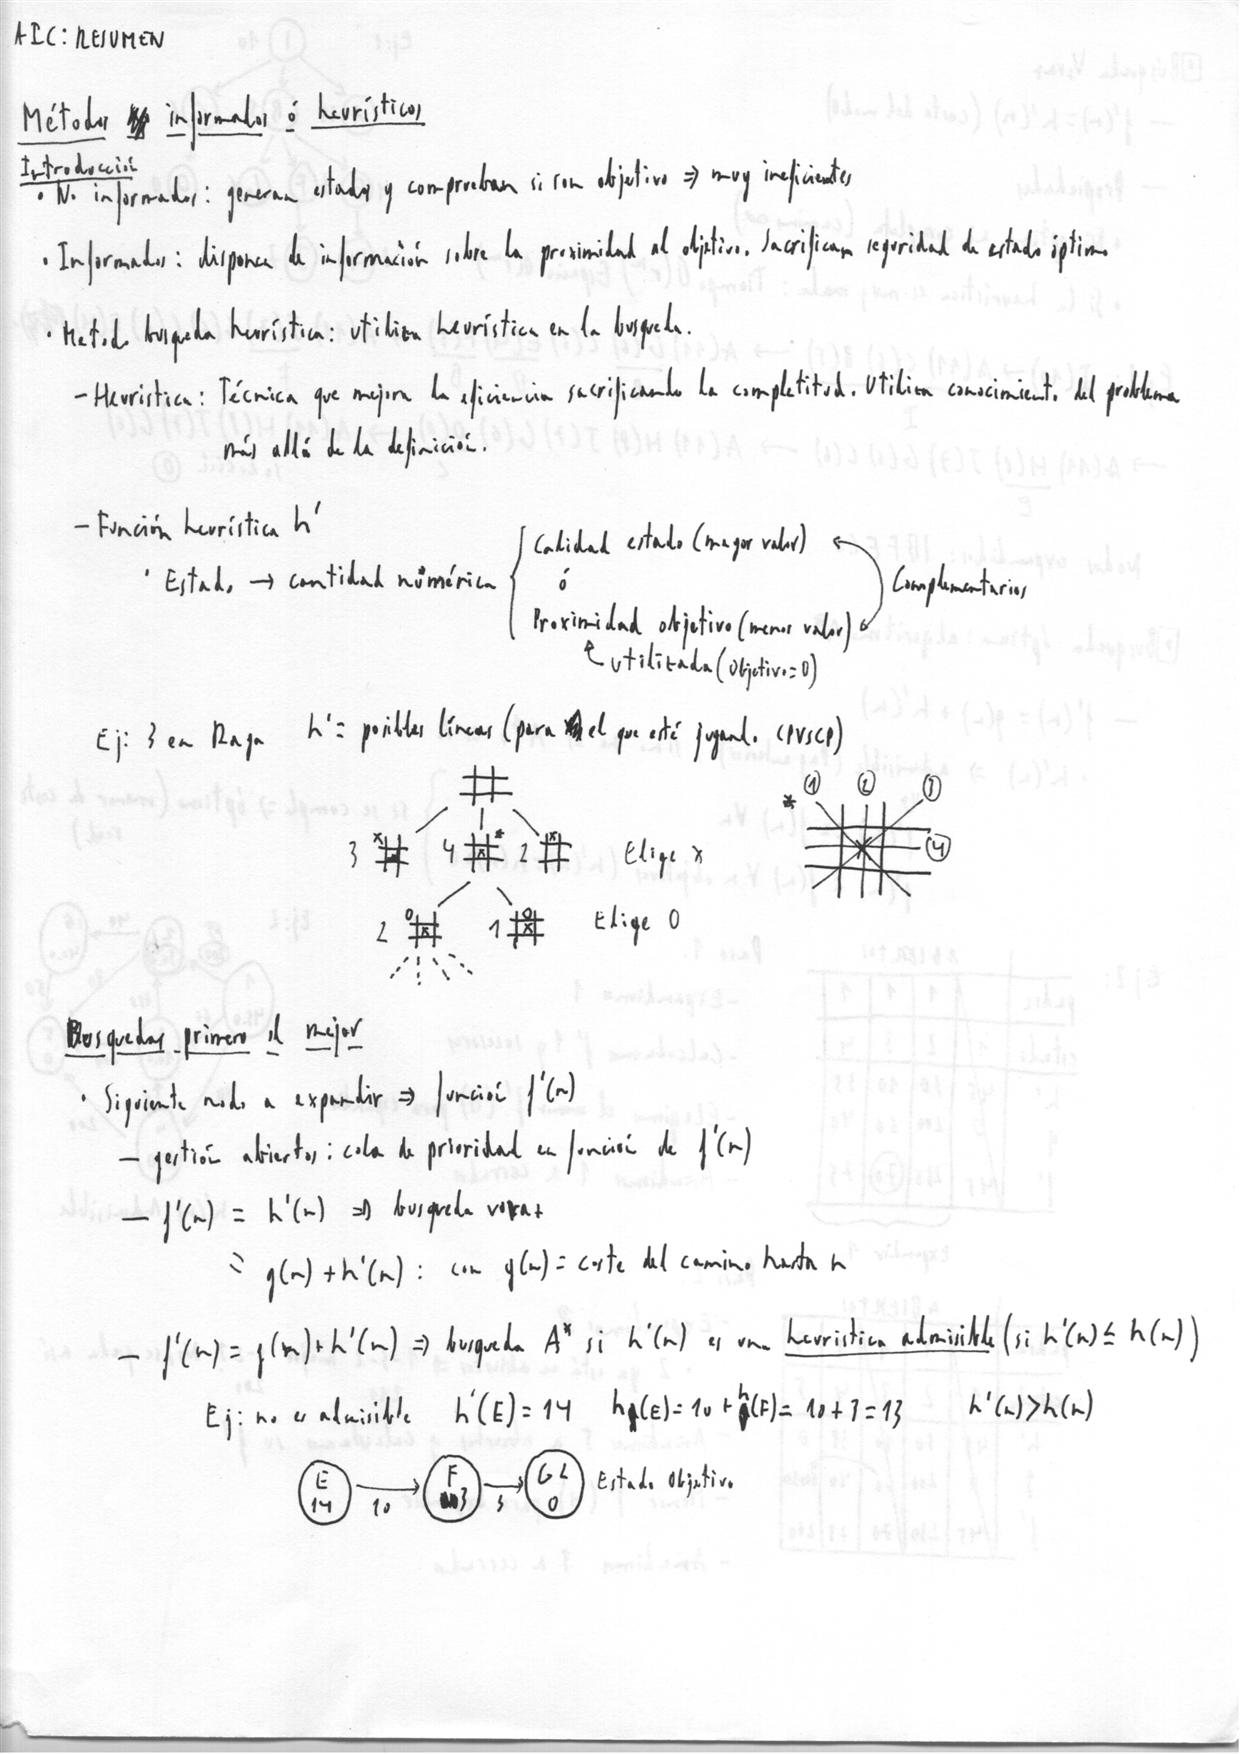 AIC: RESUMEN
Métodos informados ó heurísticos
Introducción
• No informados: generan estados y comprueban si son objetivo ⇒ muy ineficientes
• Informados: dispone de información sobre la proximidad al objetivo. Sacrifican seguridad de estado óptimo
• Metodo busqueda heurística: utiliza heurística en la busqueda.
- Heurística: Técnica que mejora la eficiencia sacrificando la completitud. Utiliza conocimiento del problema
más allá de la definición.
- Función heurística h'
• Estado → cantidad numérica
Calidad estado (mayor valor)
ó
Proximidad objetivo (menor valor)
Complementarios
utilizada (objetivo = 0)
Ej: 3 en Raya h' = posibles líneas (para el que está jugando. CPVSCP)
1 2 3
*
4
x x * x
3 4 x 2 Elige x
0 0
2 x 1 x Elige 0
Busquedas primero el mejor
• Siguiente nodo a expandir ⇒ función f'(n)
- gestión abiertos: cola de prioridad en función de f'(n)
- f'(n) = h'(n) ⇒ busqueda voraz
= g(n) + h'(n): con g(n) = coste del camino hasta n
- f'(n) = g(n) + h'(n) ⇒ busqueda A* si h'(n) es una heuristica admisible (si h'(n) ≤ h(n))
Ej: no es admisible h'(E) = 14 h(E) = 10 + h(F) = 10 + 3 = 13 h'(n) > h(n)
E 14 10 F 3 3 0 Estado Objetivo